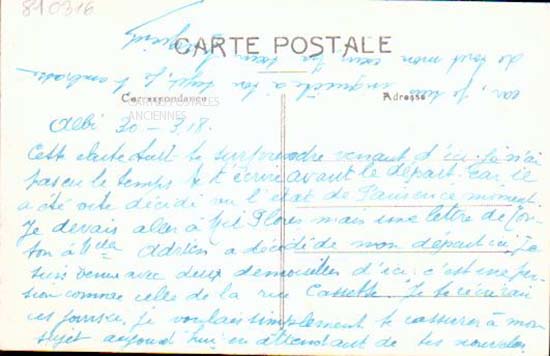 810316
CARTE POSTALE
Correspondance
Adresse
CARTES POSTALES
ANCIENNES
Albi 30 - 3. 18.
Cette carte doit te surprendre venant d'ici. Je n'ai
pas eu le temps de t'écrire avant le départ. Car il
a été vite décidé vu l'état de Paris en ce moment.
Je devais aller à mais une lettre de
à Adrien a décidé de mon départ ici. Je
suis venue avec deux demoiselles d'ici: c'est une pen-
sion comme celle de la rue Cassette. Je t'écrirai
ces jours-ci. je voulais simplement te rassurer à mon
sujet aujourd'hui, en attendant de tes nouvelles
car, je suis inquiète à ton sujet, je t'embrasse
de tout mon cœur ta